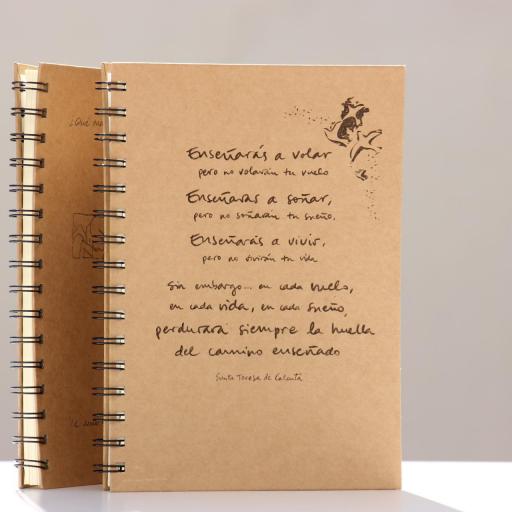 Enseñarás a volar
pero no volarán tu vuelo
Enseñarás a soñar,
pero no soñarán tu sueño.
Enseñarás a vivir,
pero no vivirán tu vida
Sin embargo... en cada vuelo,
en cada vida, en cada sueño,
perdurará siempre la huella
del camino enseñado
Santa Teresa de Calcuta
¿Qué